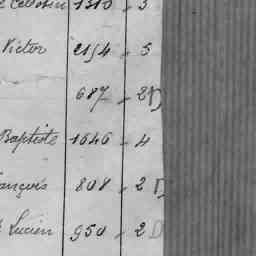 1310 - 3
Victor 2154 - 5
687 - 2D
Baptiste 1646 - 4
ançois 808 - 2 D
Lucien 950 - 2 D